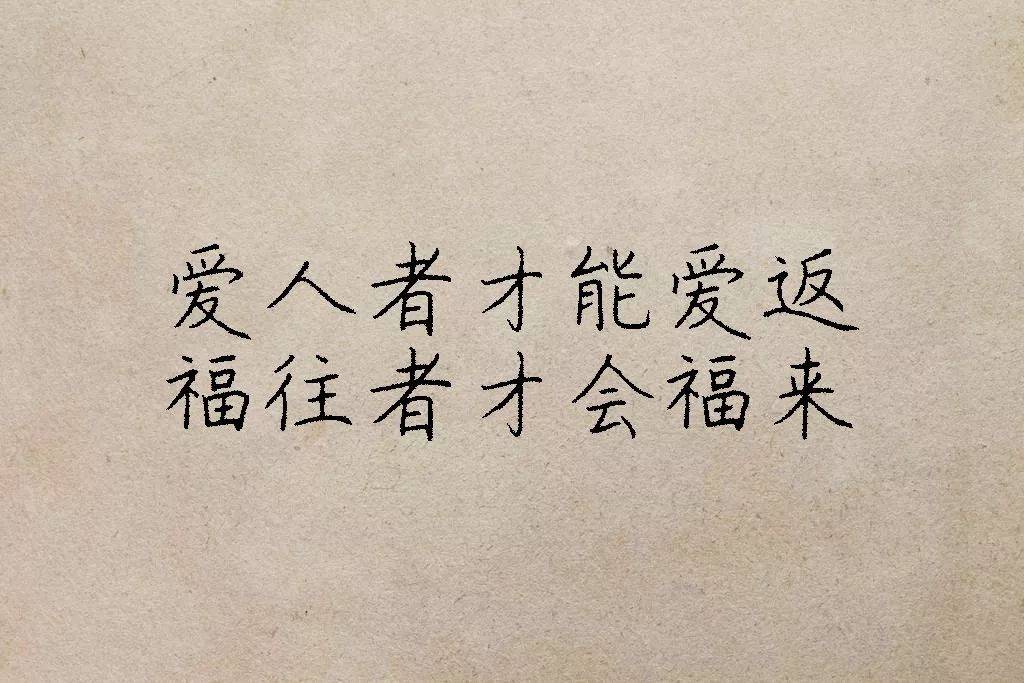 爱人者才能爱返
福往者才会福来